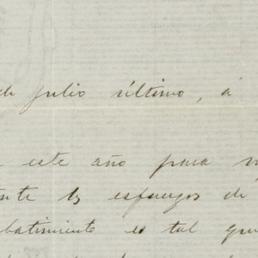 de Julio último, á
este año para
los esfuerzos de
batimiento es tal que